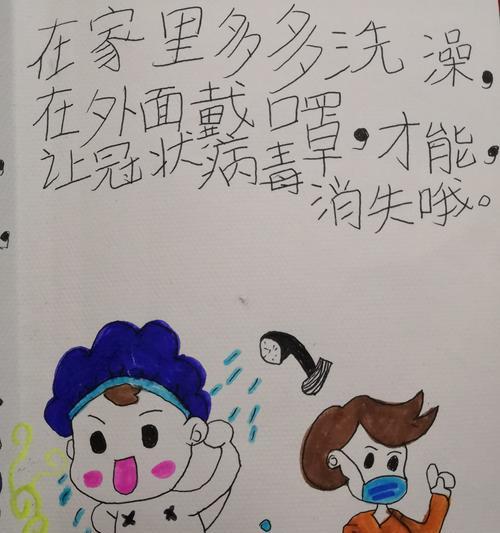 在家里多多洗澡，
在外面戴口罩，才能，
让冠状病毒
消失哦。